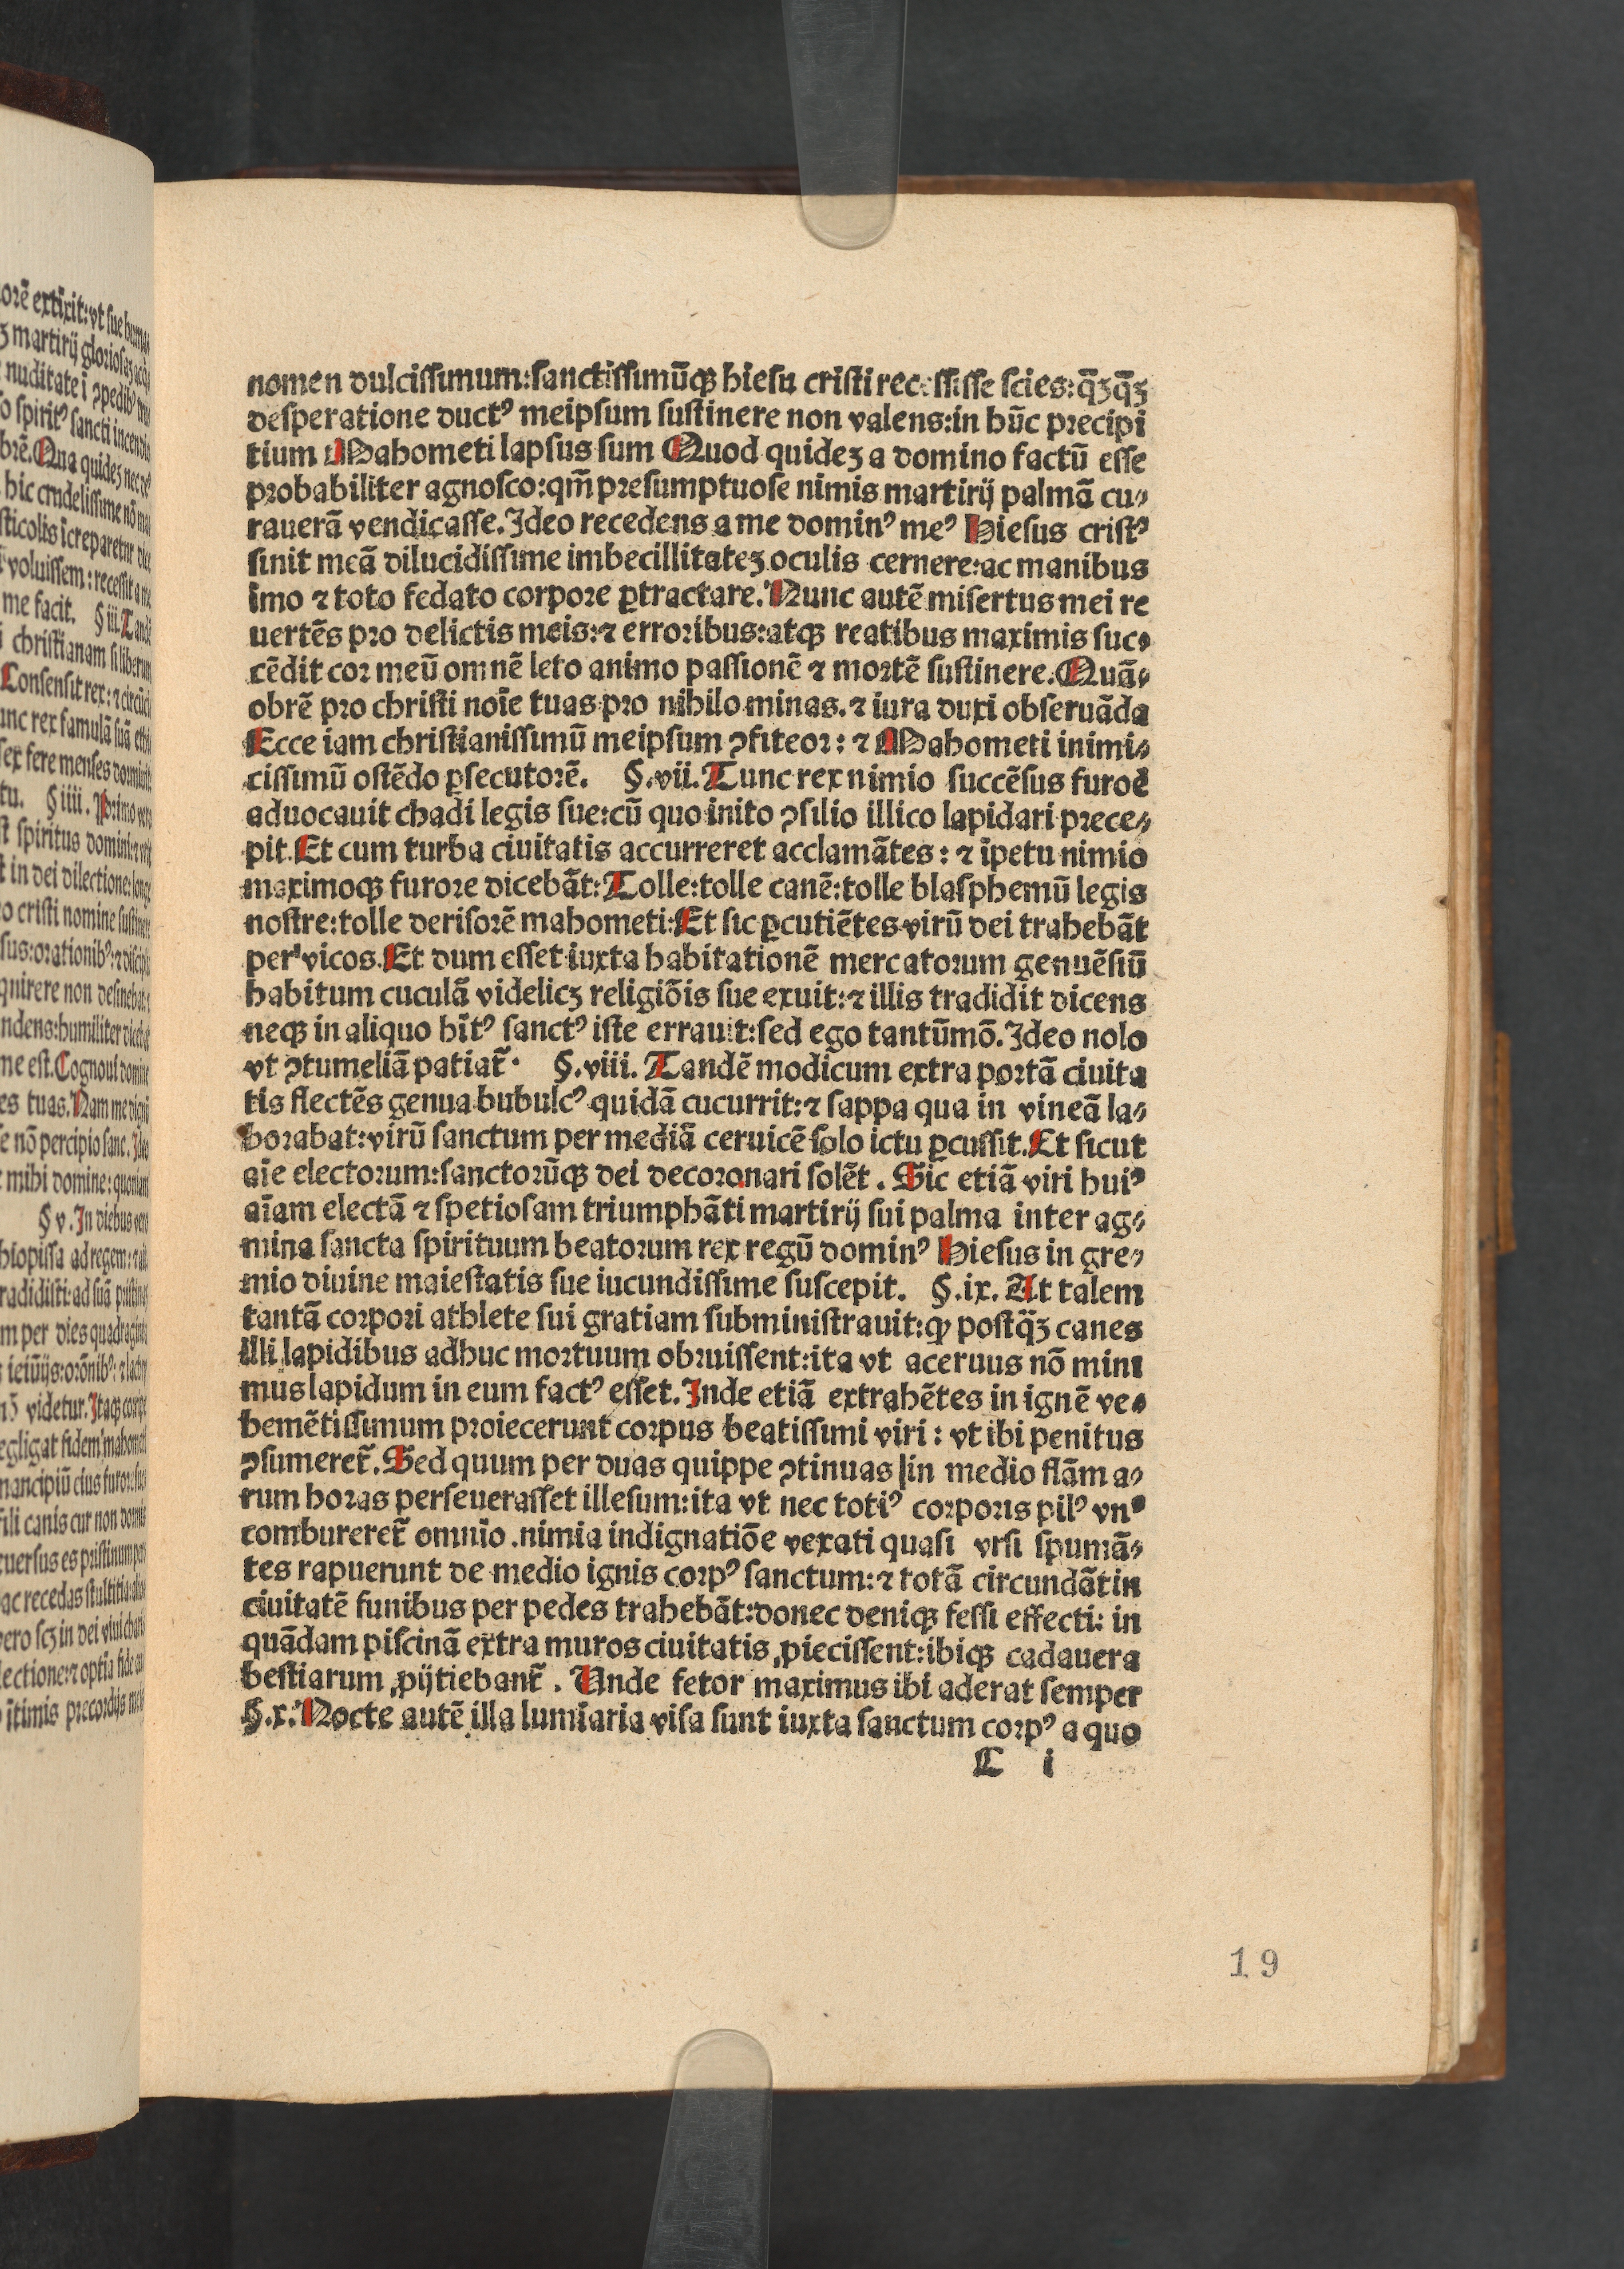 nomen dulcissimum:sanctissimūqꝫ hiesu cristi recessisse scies:qꝫ̄qꝫ̄
desperatione ductꝰ meipsum sustinere non valens:in hūc precipi
tium Mahometi lapsus sum Quod quidez a domino factū esse
probabiliter agnosco:qm̄ presumptuose nimis martirij palmā cu⸗
rauerā vendicasse. Ideo recedens a me dominꝰ meꝰ Hiesus cristꝰ
sinit meā dilucidissime imbecillitatez oculis cernere:ac manibus
imo ⁊ toto fedato corpore ꝑtractare. Nunc autē misertus mei re
uertēs pro delictis meis:⁊ erroribus:atqꝫ reatibus maximis suc⸗
cēdit cor meū omnē leto animo passionē ⁊ mortē sustinere. Quā⸗
obrē pro christi noīe tuas pro nihilo minas. ⁊ iura duxi obseruāda
Ecce iam christianissimū meipsum ꝯfiteor: ⁊ Mahometi inimi⸗
cissimū ostēdo ꝑsecutorē. §.vii. Tunc rex nimio succēsus furoē
aduocauit chadi legis sue:cū quo inito ꝯsilio illico lapidari prece⸗
pit. Et cum turba ciuitatis accurreret acclamātes: ⁊ īpetu nimio
maximoqꝫ furore dicebāt: Tolle:tolle canē:tolle blasphemū legis
nostre:tolle derisorē mahometi: Et sic ꝑcutiētes virū dei trahebāt
per vicos. Et dum esset iuxta habitationē mercatorum genuēsiū
habitum cuculā videlicꝫ religiōis sue exuit:⁊ illis tradidit dicens
neqꝫ in aliquo hītꝰ sanctꝰ iste errauit:sed ego tantūmō. Ideo nolo
vt ꝯtumeliā patiat᷑. §.viii. Tandē modicum extra portā ciuita
tis flectēs genua bubulcꝰ quidā cucurrit:⁊ sappa qua in vineā la⸗
borabat:virū sanctum per mediā ceruicē solo ictu ꝑcussit. Et sicut
aīe electorum:sanctorūqꝫ dei decoronari solēt. Sic etiā viri huiꝰ
aīam electā ⁊ spetiosam triumphāti martirij sui palma inter ag⸗
mina sancta spirituum beatorum rex regū dominꝰ Hiesus in gre⸗
mio diuine maiestatis sue iucundissime suscepit. §.ix. At talem
tantā corpori athlete sui gratiam subministrauit:ꝙ postq̄ꝫ canes
illi lapidibus adhuc mortuum obruissent:ita vt aceruus nō mini
mus lapidum in eum factꝰ esset. Inde etiā extrahētes in ignē ve⸗
hemētissimum proiecerunt corpus beatissimi viri: vt ibi penitus
ꝯsumeret᷑. Sed quum per duas quippe ꝯtinuas in medio flāma⸗
rum horas perseuerasset illesum:ita vt nec totiꝰ corporis pilꝰ vnꝰ
combureret᷑ omnīo. nimia indignatiōe vexati quasi vrsi spumā⸗
tes rapuerunt de medio ignis corpꝰ sanctum:⁊ totā circundātin
ciuitatē funibus per pedes trahebāt:donec deniqꝫ fessi effecti: in
quādam piscinā extra muros ciuitatis ꝓiecissent:ibiqꝫ cadauera
bestiarum ꝓijtiebant᷑. Unde fetor maximus ibi aderat semper
§.x. Nocte autē illa lumīaria visa sunt iuxta sanctum corpꝰ a quo
C i
19